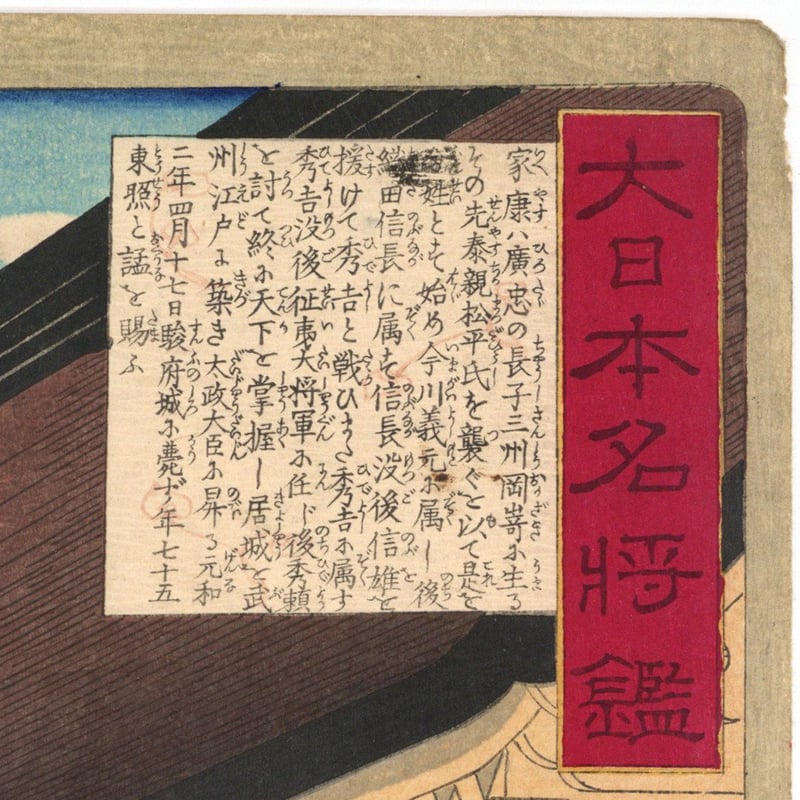 大日本名将鑑
家康ハ廣忠の長子三州岡嵜に生る
その先泰親松平氏を襲ぐを以て是を
姓とす始め今川義元に属し後
織田信長に属す信長没後信雄を
援けて秀吉と戦ひまた秀吉に属す
秀吉没後征夷大将軍に任じ後秀頼
を討て終に天下を掌握し居城を武
州江戸に築き太政大臣に昇る元和
二年四月十七日駿府城に薨ず年七十五
東照と諡を賜ふ